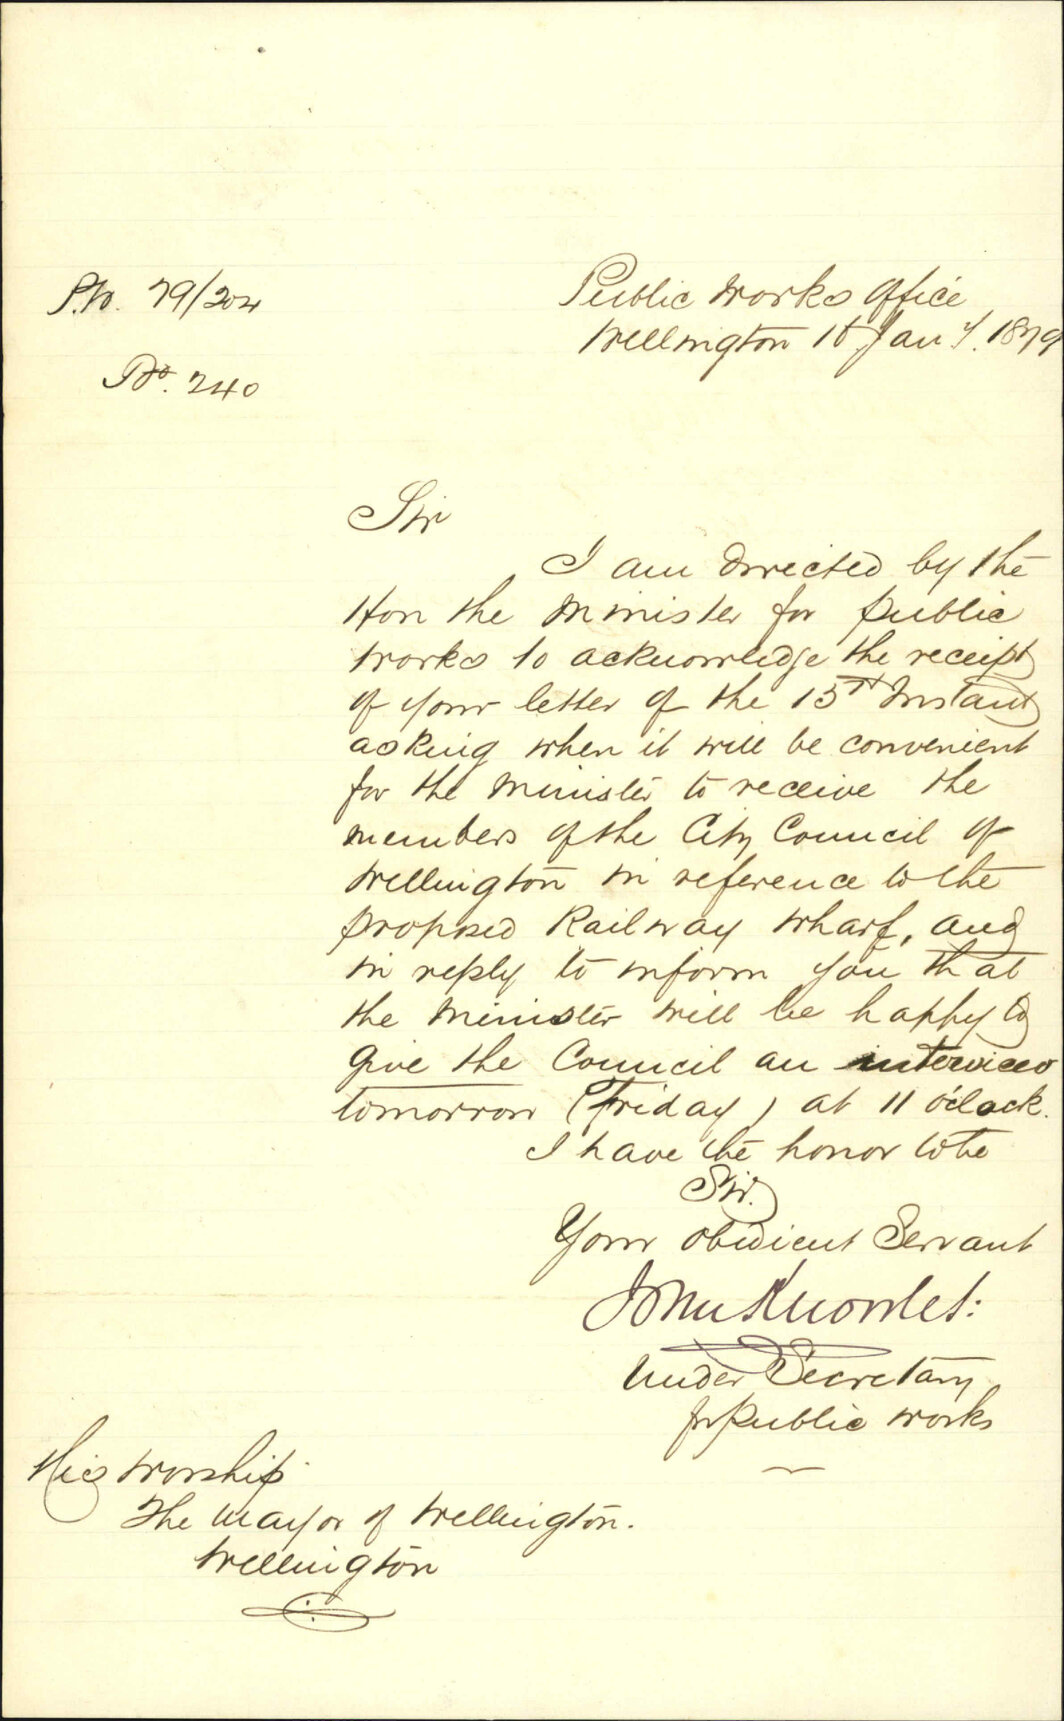 P.W. 79/204
Do. 240
Public Works Office
Wellington 16 Jany. 1879
Sir
I am directed by the
Hon the Minister for Public
Works to acknowledge the receipt
of your letter of the 15th Instant
asking when it will be convenient
for the Minister to receive the
members of the City Council of
Wellington in reference to the
proposed Railway Wharf, and
in reply to inform you that
the Minister will be happy to
give the Council an interview
tomorrow (Friday) at 11 o'clock.
I have the honor to be
Sir.
Your obedient Servant
John Knowles:
Under Secretary
for Public Works
His Worship
The Mayor of Wellington.
Wellington